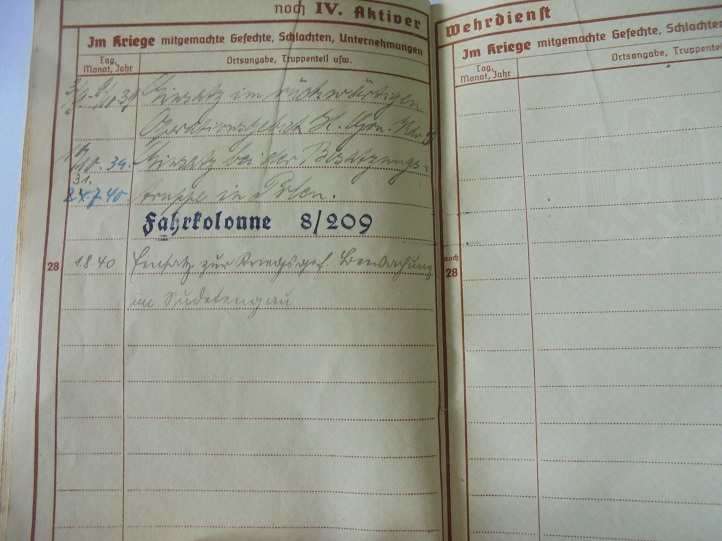 noch IV. Aktiver Wehrdienst
Im Kriege mitgemachte Gefechte, Schlachten, Unternehmungen
Tag, Monat, Jahr
Ortsangabe, Truppenteil usw.
39 Einsatz im rückwärtigen
Operationsgebiet
10.39. Einsatz bei der Besatzungs-
31.
7.40. truppe in Polen.
Fahrkolonne 8/209
28
1.8.40 Einsatz zur Kriegsgef. Bewachung
im Sudetengau
Im Kriege mitgemachte Gefechte, Schlachten
Tag, Monat, Jahr
Ortsangabe, Truppente
noch 28